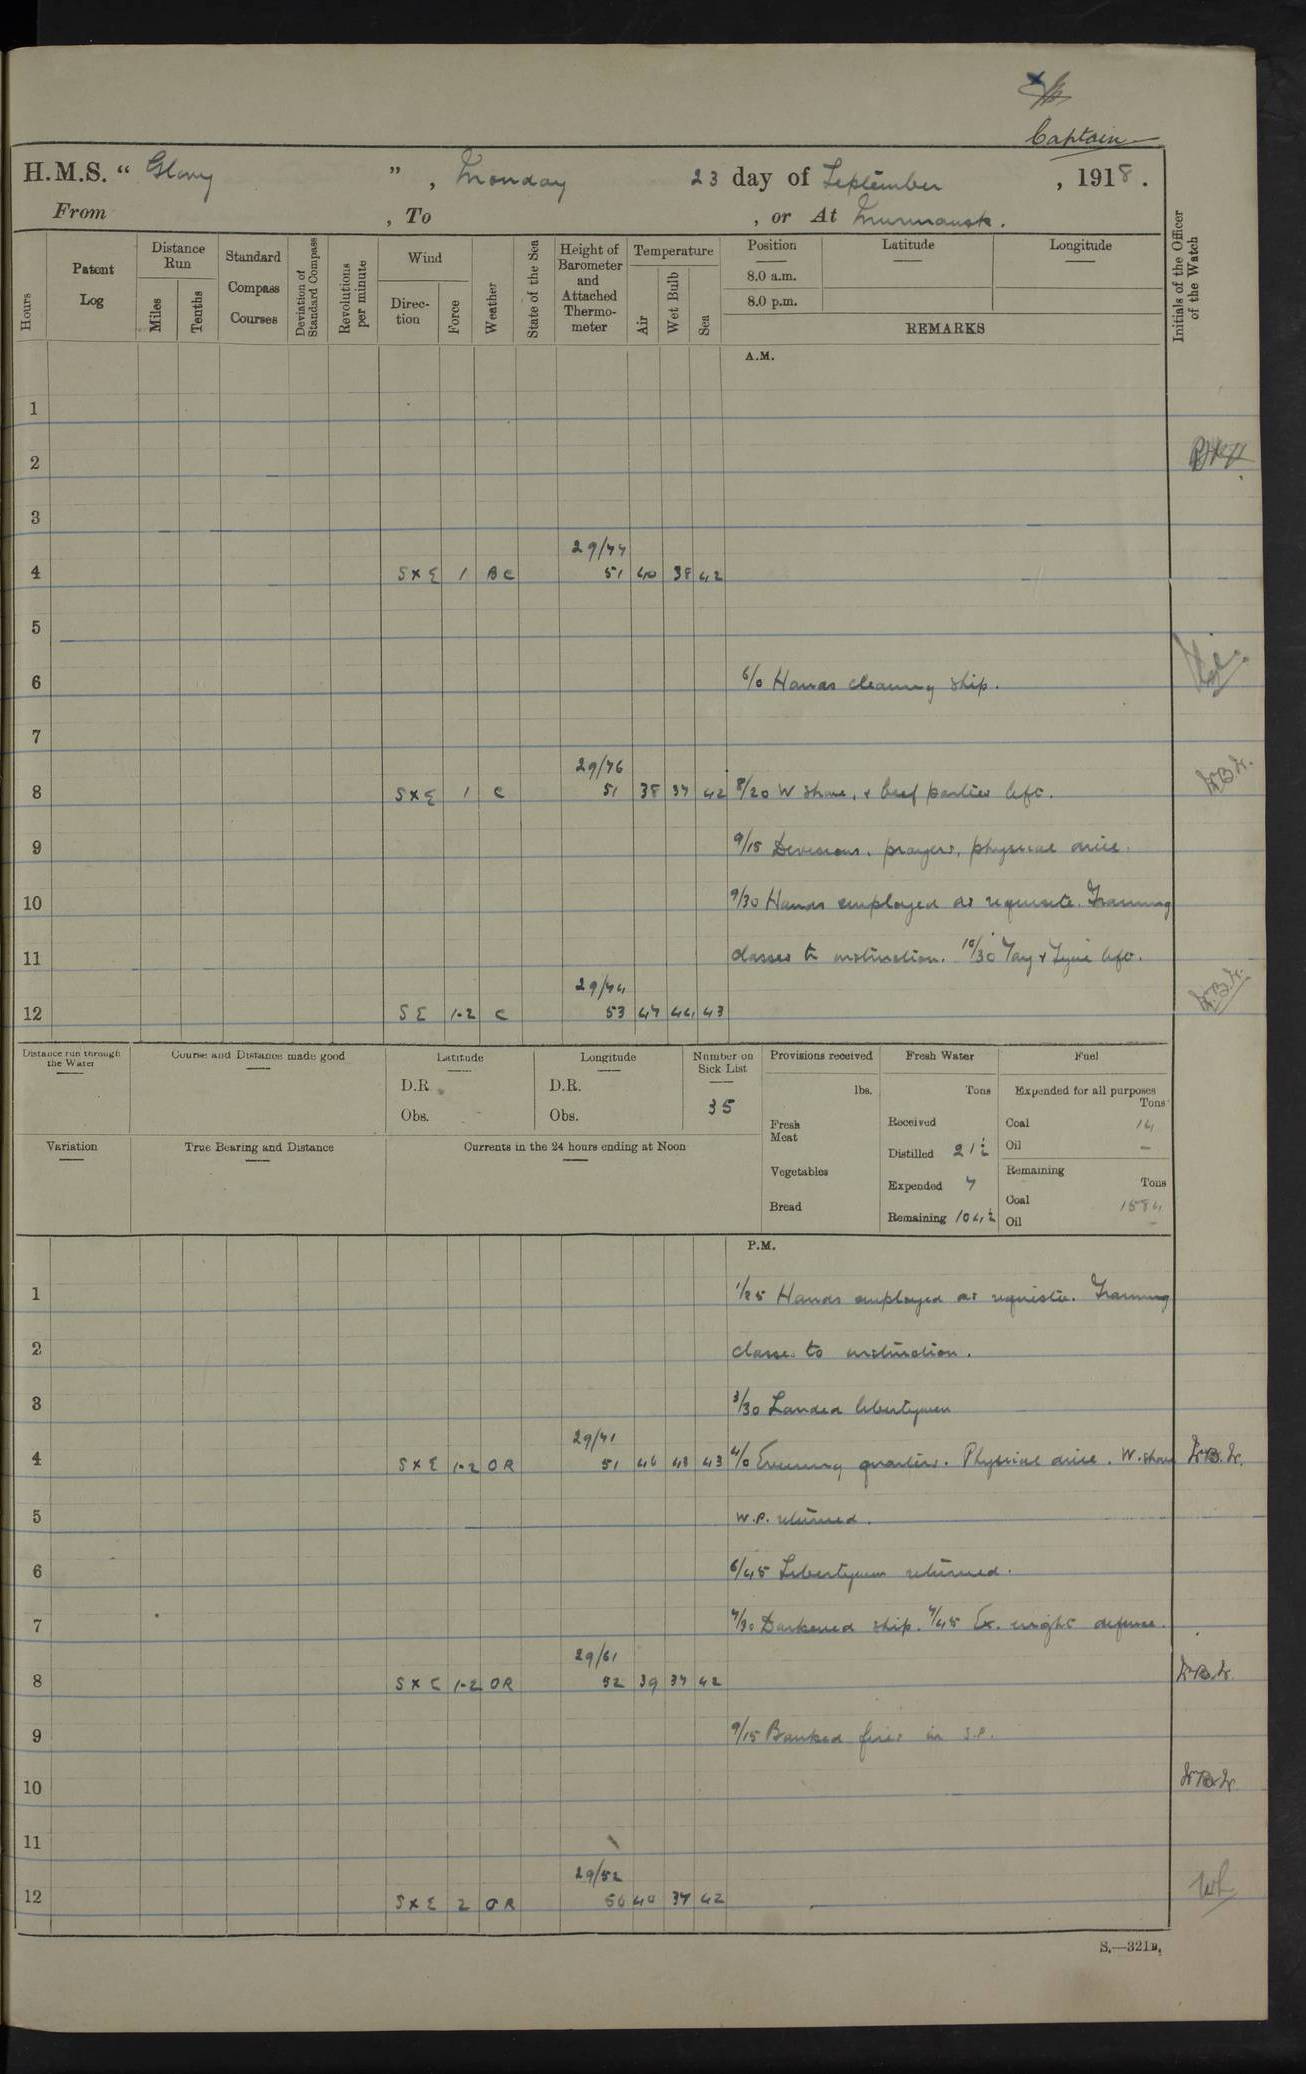 Captain
H.M.S. “ Glory ” , Monday 23 day of September , 1918 .
From , To , or At Murmansk .
Hours
Patent Log
Distance Run
Miles
Tenths
Standard Compass Courses
Deviation of Standard Compass
Revolutions per minute
Wind
Direc- tion
Force
Weather
State of the Sea
Height of Barometer and Attached Thermo- meter
Temperature
Air
Wet Bulb
Sea
Position
8.0 a.m.
8.0 p.m.
Latitude
Longitude
REMARKS
Initials of the Officer of the Watch
A.M.
1
2
3
29/77
4 S x E 1 B C 51 40 38 42
5
6 6/0 Hands cleaning ship.
7
29/76
8 S x E 1 C 51 38 37 42 8/20 W shore, & beef parties left.
9 9/15 Divisions, prayers, physical drill.
10 9/30 Hands employed as requisite. Training
11 classes to instruction. 10/30 Tay & Tyne left.
29/74
12 S E 1-2 C 53 47 44 43
Distance run through the Water
Course and Distance made good
Latitude
D.R.
Obs.
Longitude
D.R.
Obs.
Number on Sick List
35
Provisions received
lbs.
Fresh Meat
Vegetables
Bread
Fresh Water
Tons
Received
Distilled 21½
Expended 7
Remaining 104½
Fuel
Expended for all purposes
Tons
Coal 14
Oil –
Remaining
Tons
Coal 1584
Oil –
Variation
True Bearing and Distance
Currents in the 24 hours ending at Noon
P.M.
1 1/25 Hands employed as requisite. Training
2 classes to instruction.
3 3/30 Landed libertymen
29/71
4 S x E 1-2 O R 51 46 43 43 4/0 Evening quarters. Physical drill. W. shore
5 W.P. returned.
6 6/45 Libertymen returned.
7 7/30 Darkened ship. 7/45 Ex. night defence.
29/61
8 S x E 1-2 O R 52 39 37 42
9 9/15 Banked fires in S.P.
10
11
29/52
12 S x E 2 O R 50 40 37 42
S.—321B.